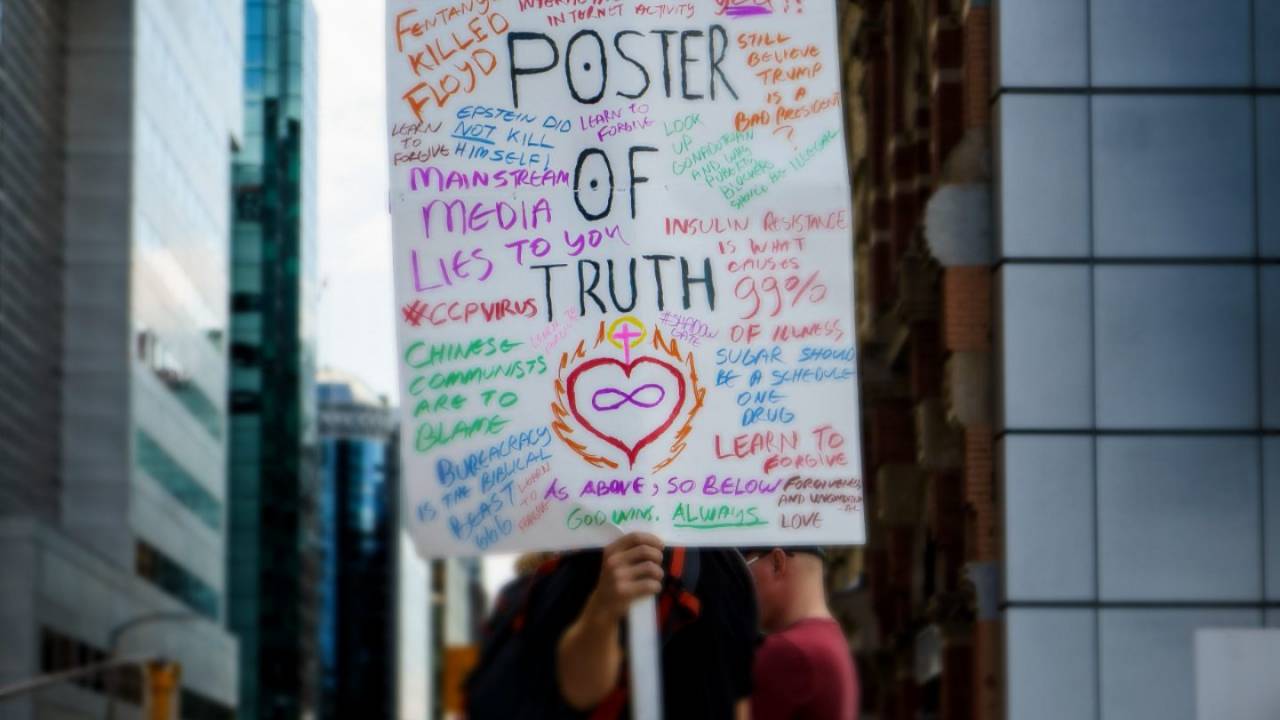 FENTANYL
KILLED
FLOYD
INTERNET ACTIVITY
YOU!!
POSTER
OF
TRUTH
STILL
BELIEVE
TRUMP
IS A
BAD PRESIDENT
?
EPSTEIN DID
NOT KILL
HIMSELF!
LEARN
TO
FORGIVE
LEARN TO
FORGIVE
LOOK
UP
AND WHY
PUBERTY
BLOCKERS
SHOULD BE ILLEGAL
MAINSTREAM
MEDIA
LIES TO YOU
INSULIN RESISTANCE
IS WHAT
CAUSES
99%
OF ILLNESS
#CCPVIRUS
LEARN TO
FORGIVE
#SHADOW
GATE
CHINESE
COMMUNISTS
ARE TO
BLAME
SUGAR SHOULD
BE A SCHEDULE
ONE
DRUG
LEARN TO
FORGIVE
BUREACRACY
IS THE BIBLICAL
BEAST
666
LEARN
TO
FORGIVE
AS ABOVE, SO BELOW
GOD WINS. ALWAYS
FORGIVENESS
AND
LOVE